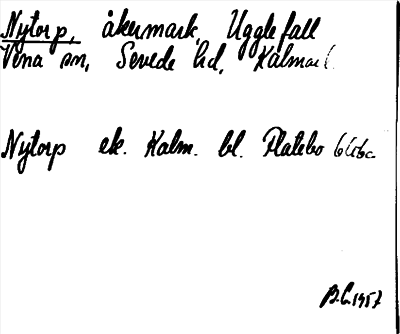 Nytorp, åkermark, Ugglefall
Vena sn, Sevede hd, Kalmar l
Nytorp ek. Kalm. bl. Flatebo
B.C. 1957